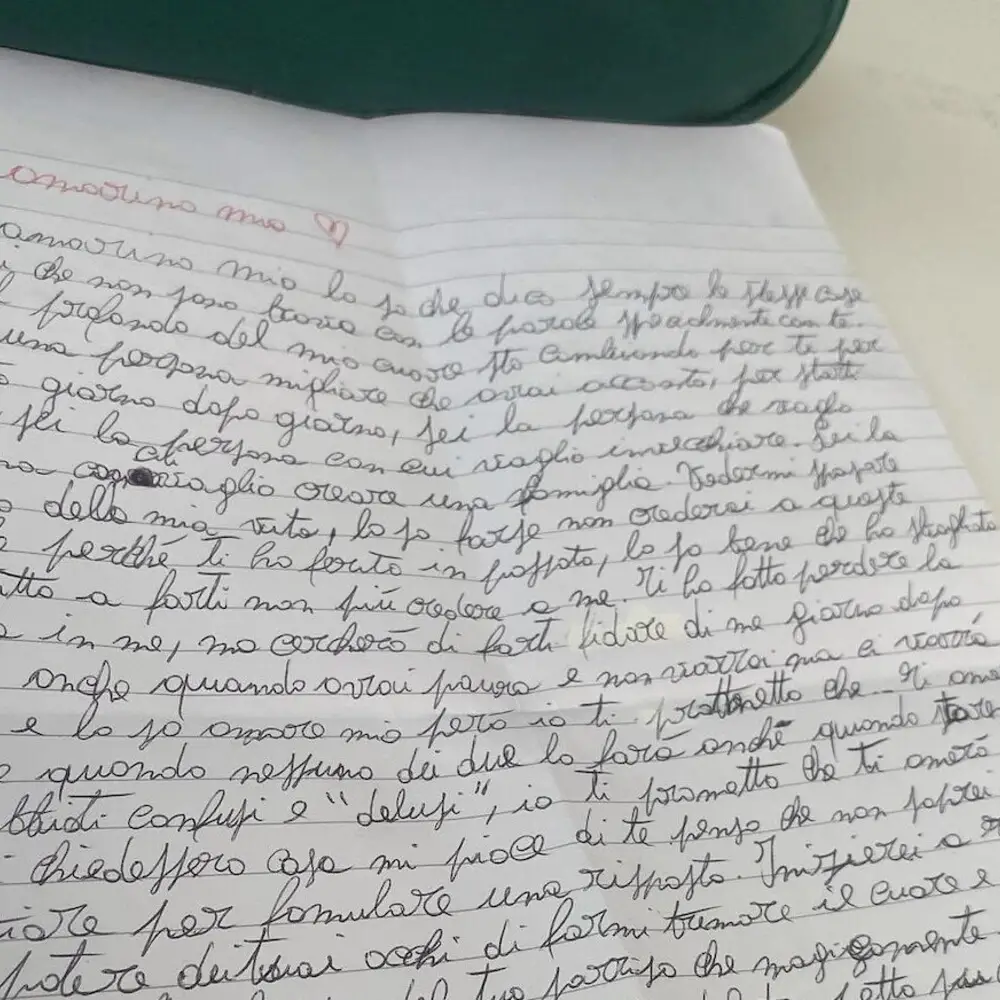 amorino mio
amorino mio lo so che dico sempre le stesse cose
che non sono bravo con le parole specialmente con te.
profondo del mio cuore sto cambiando per te per
una persona migliore che avrai accanto, per starti
giorno dopo giorno, sei la persona che voglio
sei la persona con cui voglio invecchiare. Sei la
con cui voglio creare una famiglia. Vedermi sposare
della mia vita, lo so forse non crederai a queste
perché ti ho ferito in passato, lo so bene che ho sbagliato
a farti non più credere a me. Ti ho fatto perdere la
in me, ma cercherò di farti fidare di me giorno dopo
anche quando avrai paura e non vorrai ma ci vorrà
e lo so amore mio però io ti promtto che.. Ti amo
quando nessuno dei due lo farà anche quando
confusi e "delusi", io ti prometto che ti amerò
chiedessero cosa mi piace di te penso che non saprei
per fomulare una risposta. Inizierei a
potere dei tuoi occhi di farmi tremare il cuore e
del tuo sorriso che magicamente
fatto